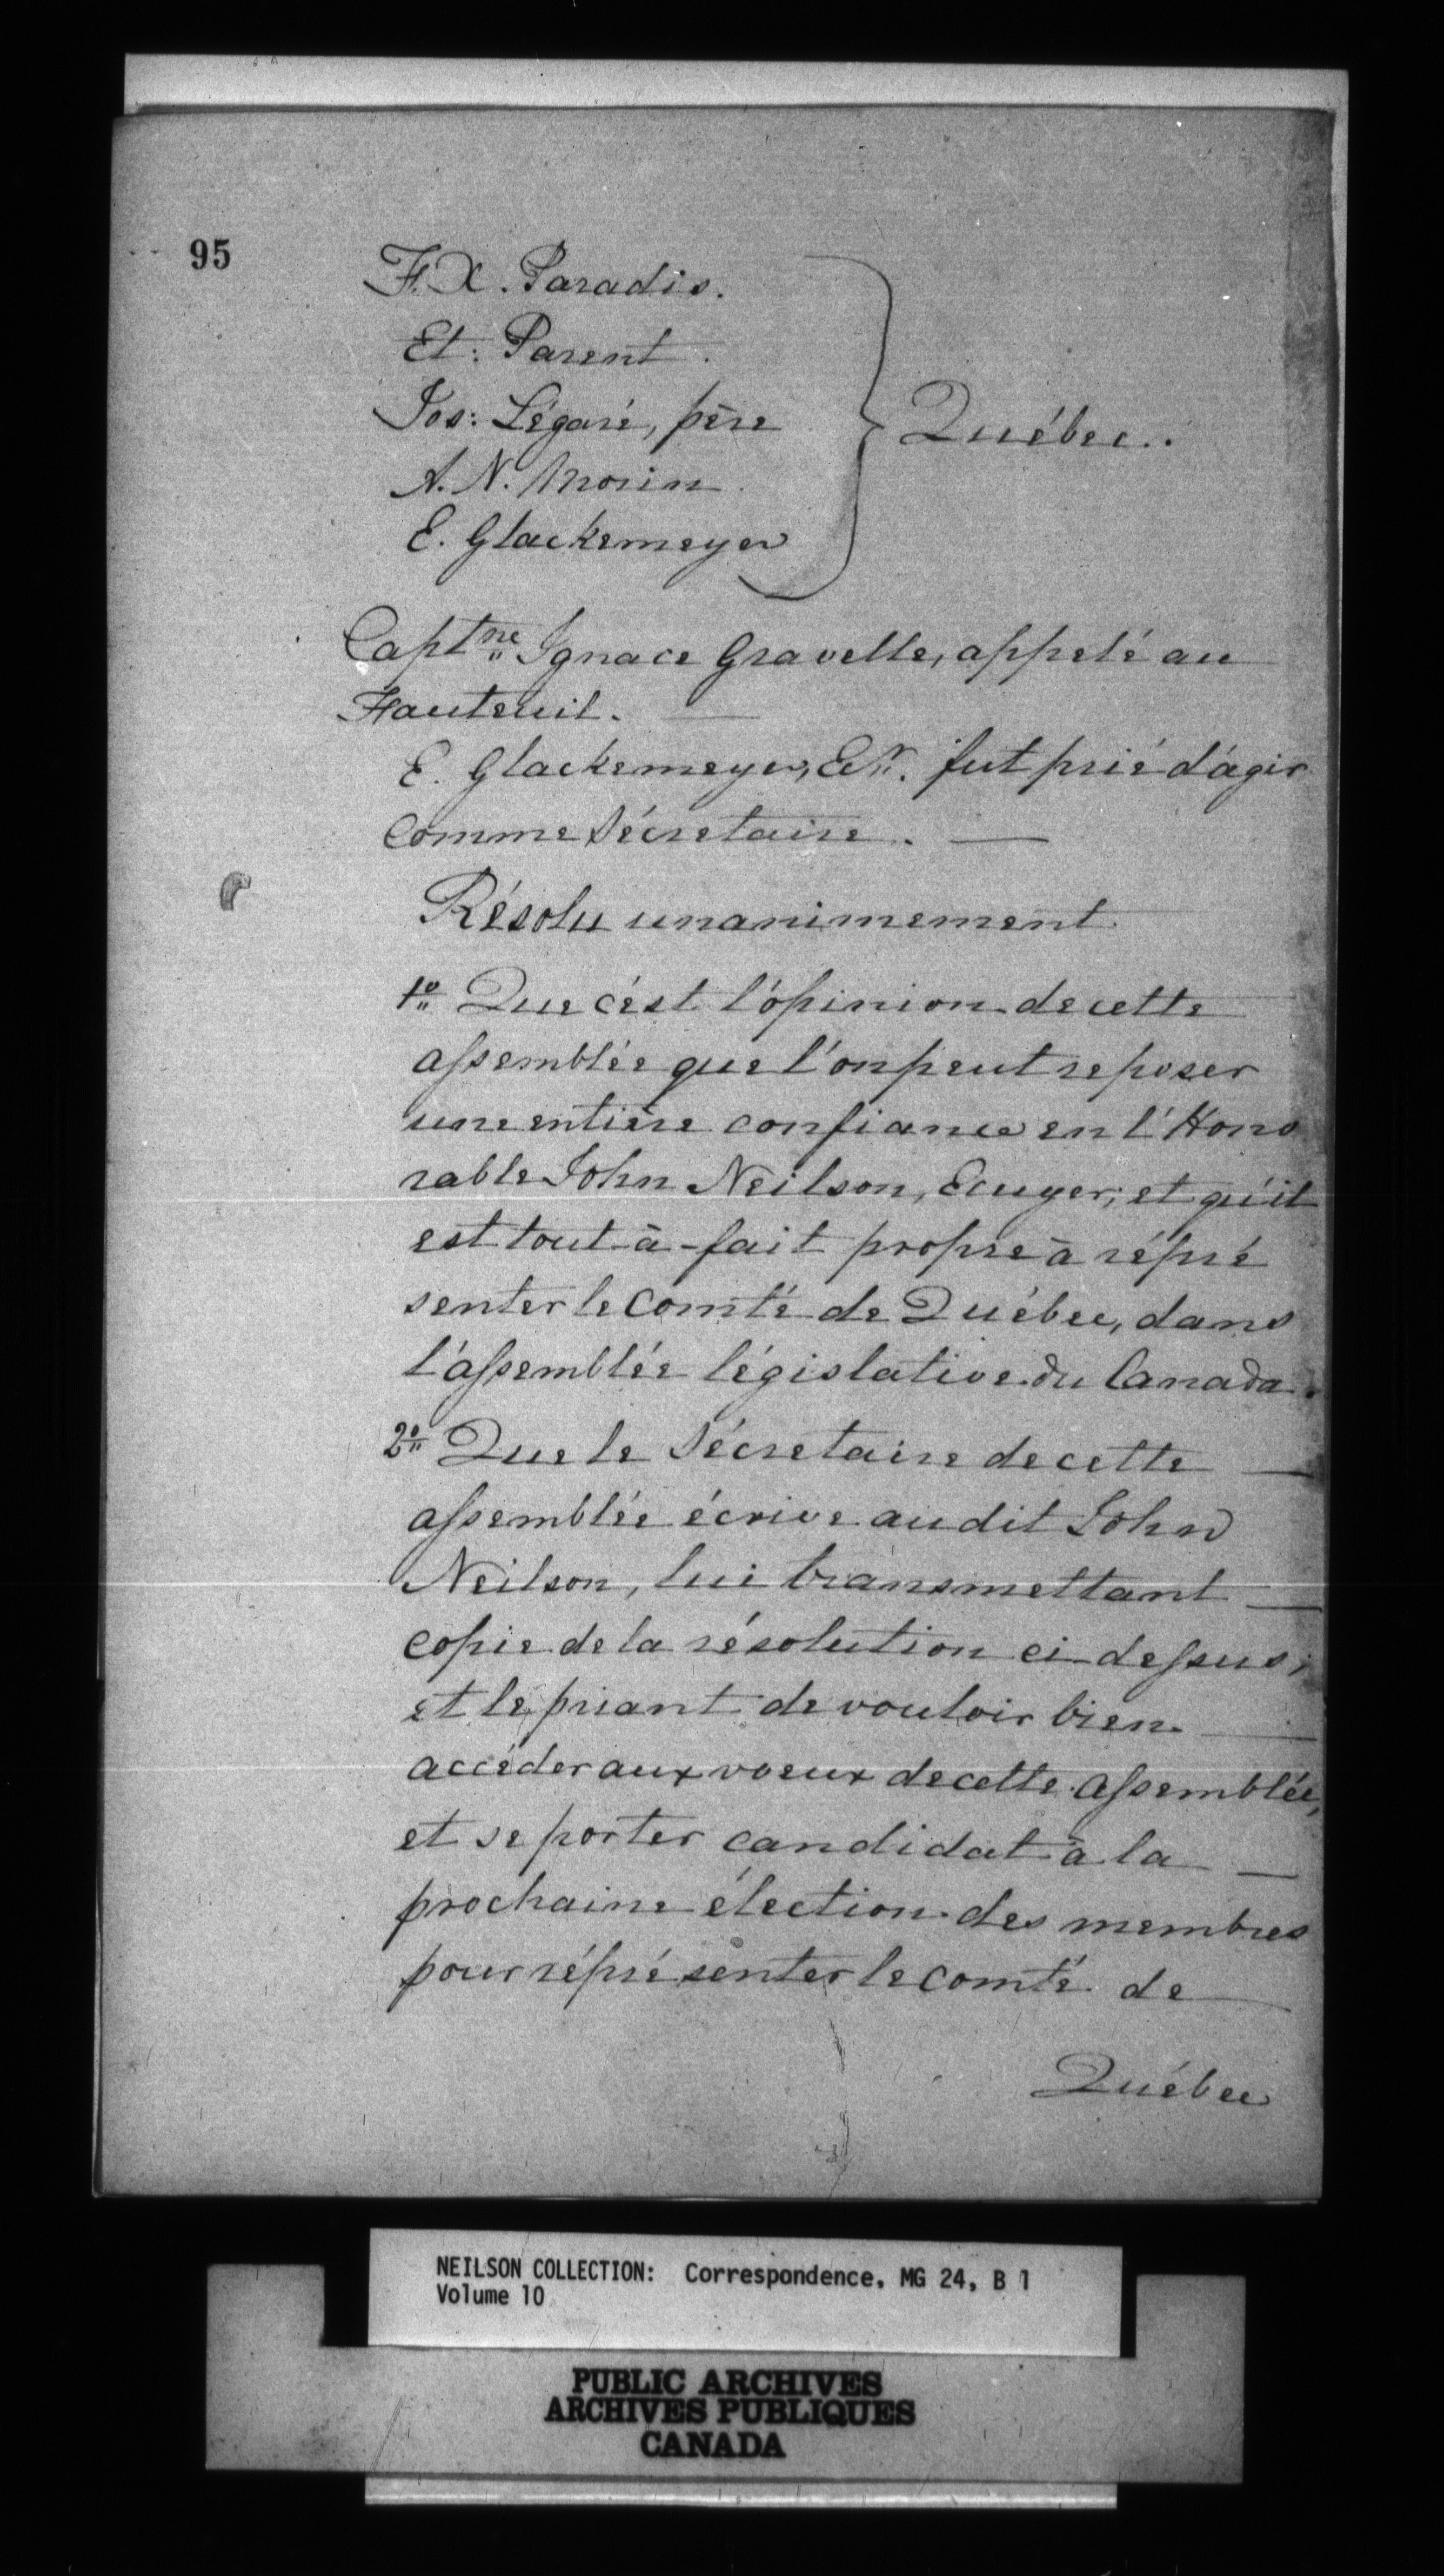 95
F. X. Paradis.
Et: Parent.
Jos: Légaré, père
A. N. Morin.
E. Glackemeyer
Québec.
Captne Ignace Gravelle, appelé au
Fauteuil. —
E. Glackemeyer, Ecr. fut prié d'agir
comme Sécretaire. —
Résolu unanimement
1o Que c'est l'opinion de cette
assemblée que l'on peut reposer
une entière confiance en l'Hono
rable John Neilson, Ecuyer; et qu'il
est tout-à-fait propre à répré
senter le Comté de Québec, dans
l'assemblée législative du Canada.
2o Que le Sécretaire de cette —
assemblée écrive au dit John
Neilson, lui transmettant —
copie de la résolution ci-dessus;
et le priant de vouloir bien —
accéder aux voeux de cette assemblée,
et se porter candidat à la —
prochaine élection des membres
pour réprésenter le comté de
Québec
NEILSON COLLECTION: Correspondence, MG 24, B 1
Volume 10
PUBLIC ARCHIVES
ARCHIVES PUBLIQUES
CANADA